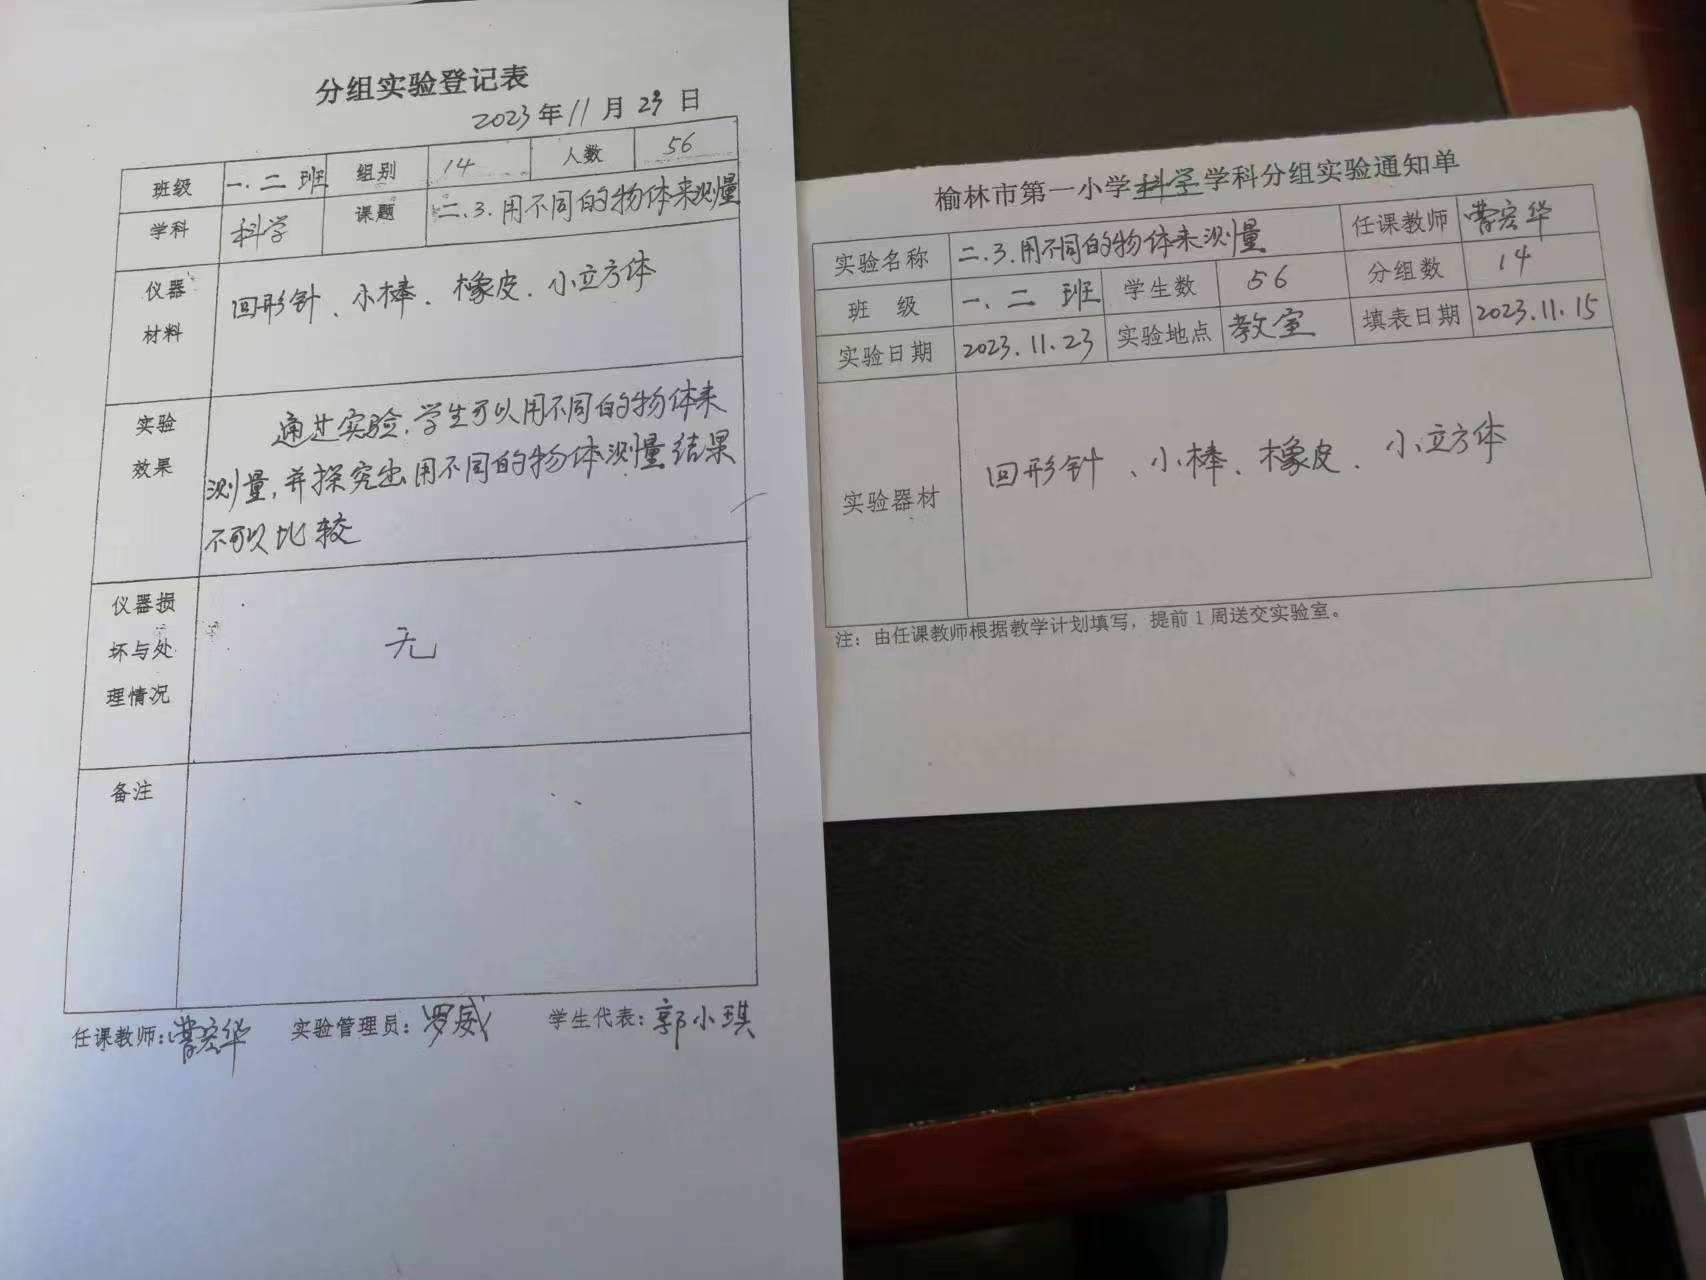 分组实验登记表
2023年11月23日
班级 一.二班 组别 14 人数 56
学科 科学 课题 二.3.用不同的物体来测量
仪器材料 回形针、小棒、橡皮、小立方体
实验效果 通过实验,学生可以用不同的物体来
测量,并探究出用不同的物体测量结果
不可以比较
仪器损坏与处理情况 无
备注
任课教师:曹宏华 实验管理员:罗威 学生代表:郭小琪
榆林市第一小学科学学科分组实验通知单
实验名称 二.3.用不同的物体来测量 任课教师 曹宏华
班级 一.二班 学生数 56 分组数 14
实验日期 2023.11.23 实验地点 教室 填表日期 2023.11.15
实验器材 回形针、小棒、橡皮、小立方体
注:由任课教师根据教学计划填写,提前1周送交实验室。